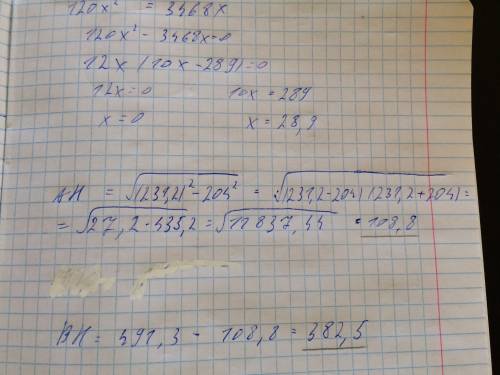 120x² = 3468x
120x² - 3468x=0
12x (10x - 289)=0
12x=0 10x = 289
x = 0 x = 28,9
AH = √(231,2)² - 204² = √(231,2-204) (231,2+204) =
= √27,2 · 435,2 = √11837,44 = 108,8
BH = 491,3 - 108,8 = 382,5